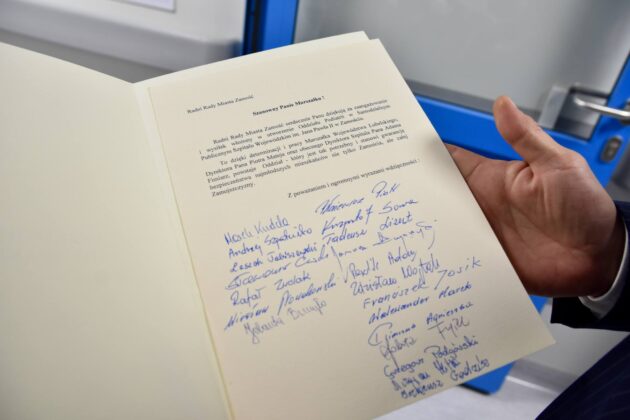 Radni Rady Miasta Zamość
Szanowny Panie Marszałku !
Radni Rady Miasta Zamość serdecznie Panu dziękują za zaangażowanie
i wysiłek włożony w utworzenie Oddziału Pediatrii w Samodzielnym
Publicznym Szpitalu Wojewódzkim im. Jana Pawła II w Zamościu.
To dzięki determinacji i pracy Marszałka Województwa Lubelskiego,
Dyrektora Pana Piotra Mateja oraz obecnego Dyrektora Szpitala Pana Adama
Fimiarz, powstaje Oddział - który jest tak potrzebny i stanowi gwarancję
bezpieczeństwa najmłodszych mieszkańców nie tylko Zamościa, ale całej
Zamojszczyzny.
Z poważaniem i ogromnymi wyrazami wdzięczności :
Marek Kudela
Andrzej
Leszek
Rafał Zwolak
Jolanta
Krzysztof Sowa
Tadeusz Lizut
Zdzisław Wojtak
Franciszek Josik
Aleksander Marek
Agnieszka
Grzegorz Podgórski